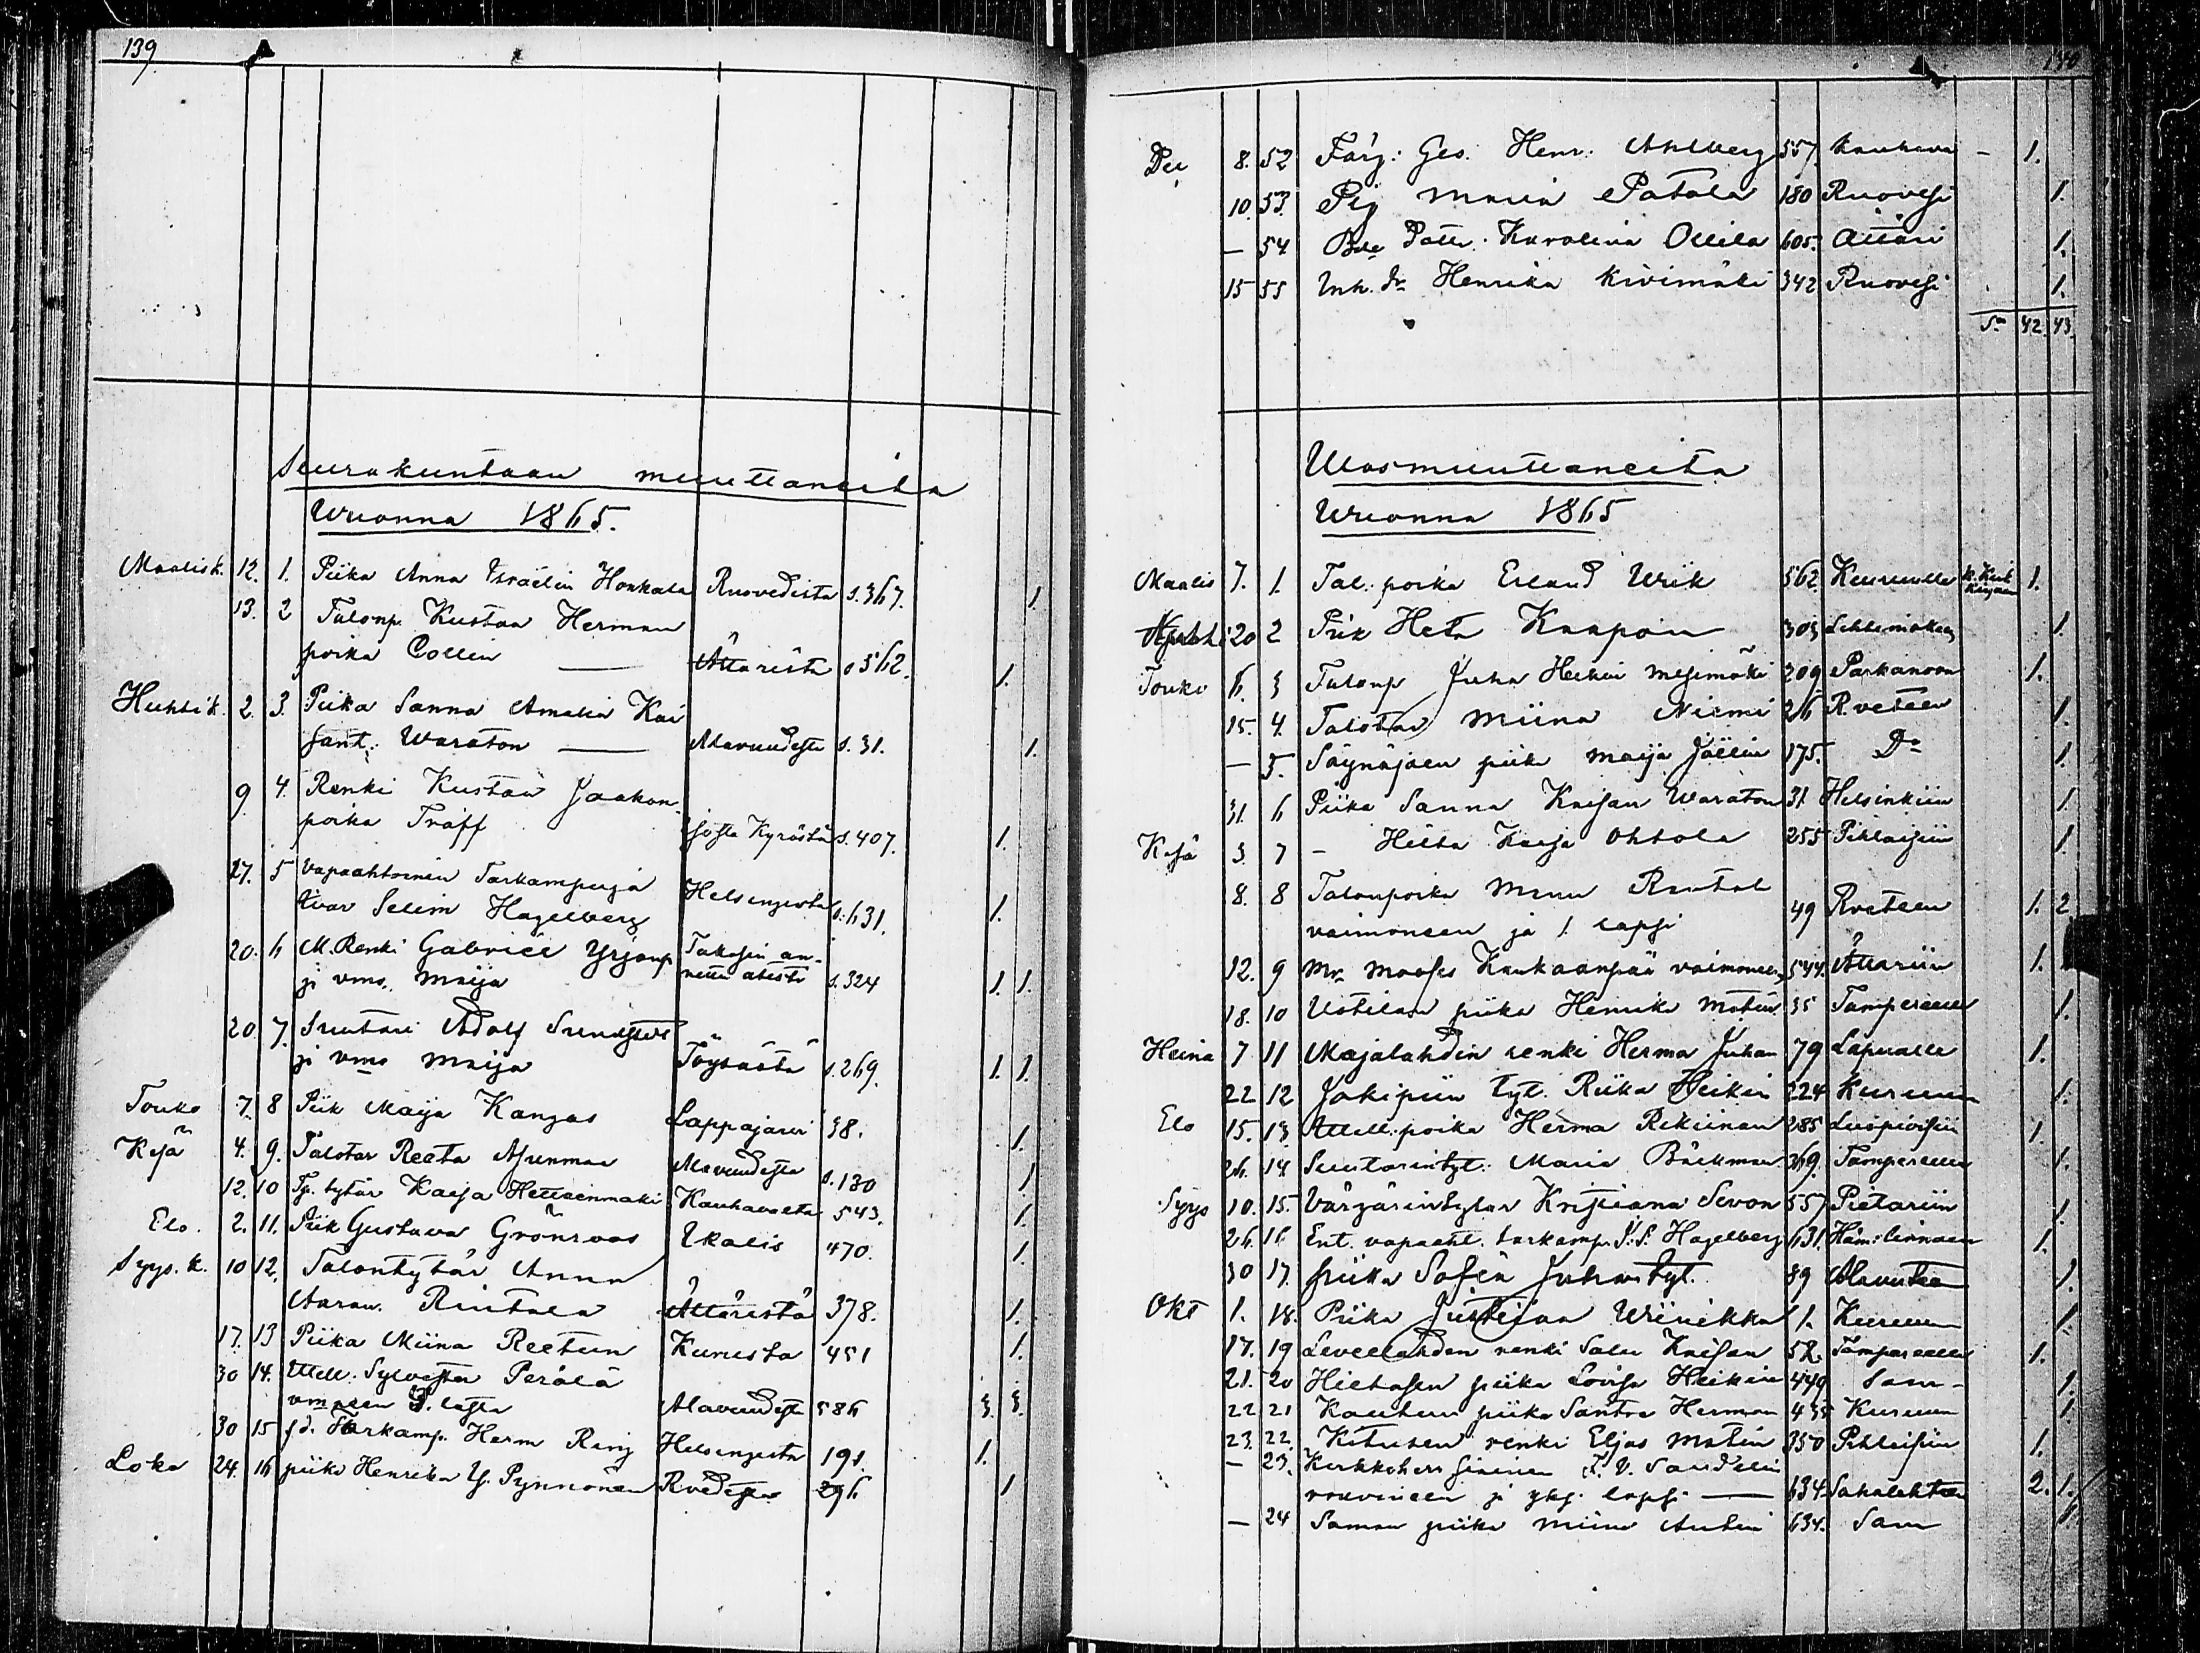 139
Seurakuntaan muuttaneita
Wuonna 1865.
Maalisk. 12. 1. Piika Anna Israelin Honkala Ruovedistä s.367. 1.
13. 2 Talonp. Kustaa Herman
poika Collin — Ätäristä s 562. 1.
Huhtik. 2. 3. Piika Sanna Amalia Kai
sant. Waraton — Alavuudesta s.31. 1.
9 4. Renki Kustaa Jaakon
poika Träff Isosta Kyröstä s.407. 1.
27. 5 Vapaahtoinen Tarkampuja
Ivar Selim Hagelberg Helsingistä s.631. 1.
20. 6 M. Renki Gabriel Yrjönp
ja vmo. Maija Takasin an-
nettu atesti s.324 1. 1.
20 7. Suutari Adolf Sundstedt
ja vmo Maija Töysästä s.269. 1. 1.
Touko 7. 8 Piik Maija Kangas Lappajärvi 38. 1.
Kesä 4. 9. Talotar Reeta Asunmaa Alavuudesta s.130 1
12. 10 Tp. tytär Kaisa Hettaenmäki Kauhavalta 543. 1.
Elo. 2. 11. Piik Gustava Grönroos Ikalis 470. 1.
Syys.k. 10 12. Talontytär Anna
Aaran. Rintala Ätäristä 378. 1.
17. 13 Piika Miina Reetun Kurusta 451 1.
30 14. Itell. Sylvester Perälä
vmoeen 3. lasta Alavuudesta 586 3. 3.
30 15 f.d. Tarkamp. Herm Ring Helsingistä 191. 1.
Loka 24. 16 piika Henrika Y. Pynnönen Rvedestä 296 1
140
Dec 8. 52 Färg: Ges. Henr: Ahlberg 557. Kauhava — 1.
10. 53. Pig Maria Patala 180 Ruovesi 1.
— 54 Bde Dotter Karolina Ollila 605. Ätäri 1.
15 55 Inh. Henrika Kivimäki 342 Ruovesi 1.
Sa 42. 43.
Ulosmuuttaneita
Wuonna 1865
Maalis 7. 1. Tal. poika Erland Wiik 562. Keuruulle 1.
20 2 Piik Heta Kaapoin 303 Lehtimäkeen 1.
Touko 6. 3 Talonp Juha Heikin Mesimäki 209 Parkanoon 1.
15. 4. Talotar Miina Niemi 26 R.veteen 1.
— 5. Säynäjäen piika Maija Joelin 175. Do 1.
31. 6 Piika Sanna Kaisan Waraton 31. Helsinkiin 1.
Kesä 3. 7 — Hilta Kaisa Ohtola 255 Pihlajisiin 1.
8. 8 Talonpoika Manu Rantal
vaimoneen ja 1. lapsi 49 Rveteen 1. 2
12. 9 Mr. Mooses Kaukaanpää vaimoneen 544. Ätäriin 1.
18. 10 Uotilan piika Henrika Matin 35 Tampereelle 1.
Heinä 7 11 Majalahdin renki Herma Juhan 79 Lapualle 1.
22 12 Jokipiin tyt. Riika Heikin 224 Kuruun 1.
Elo 15. 13 Itell. poika Herma Rekiinan 285 1.
26. 14 Suutarintyt. Maria Bäckman 369. Tampereelle 1.
Syys 10. 15. Värjärintytär Kristiana Sevon 557 Pietariin 1.
26. 16 Ent. vapaaht. tarkamp. J. S. Hagelberg 631. Häm:linnaan 1.
30 17. piika Sofia Juhantyt. 89 Alavuteen 1.
Okt 1. 18. Piika Justiina Wiinikka 1. Kuruun 1.
17. 19 renki Salu Kaisan 52. Tampereelle 1.
21. 20 Hietasen piika Lovisa Heikin 449 Sam- 1.
22 21 Kautun piika Santra Herman 435 Kuruun 1.
23. 22. Kitusen renki Eljas Matin 350 Pihlajisiin 1.
— 23. Kirkkoherr F. V. Sandelin
rouvineen ja yksi lapsi — 634. Sahalahteen 2. 1.
— 24 Saman piika Miina Antin 634. Sam 1.